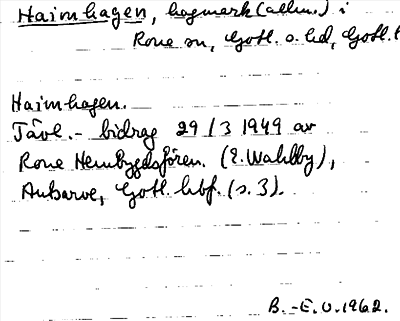 Haimhagen, hagmark (allm.) i
Rone sn, Gotl. s. hd, Gotl. l
Haimhagen.
Tävl.- bidrag 29/3 1949 av
Rone Hembygdsfören. (E. Wahlby),
Aubarve, Gotl. hbf. (s. 3).
B.-E. U. 1962.